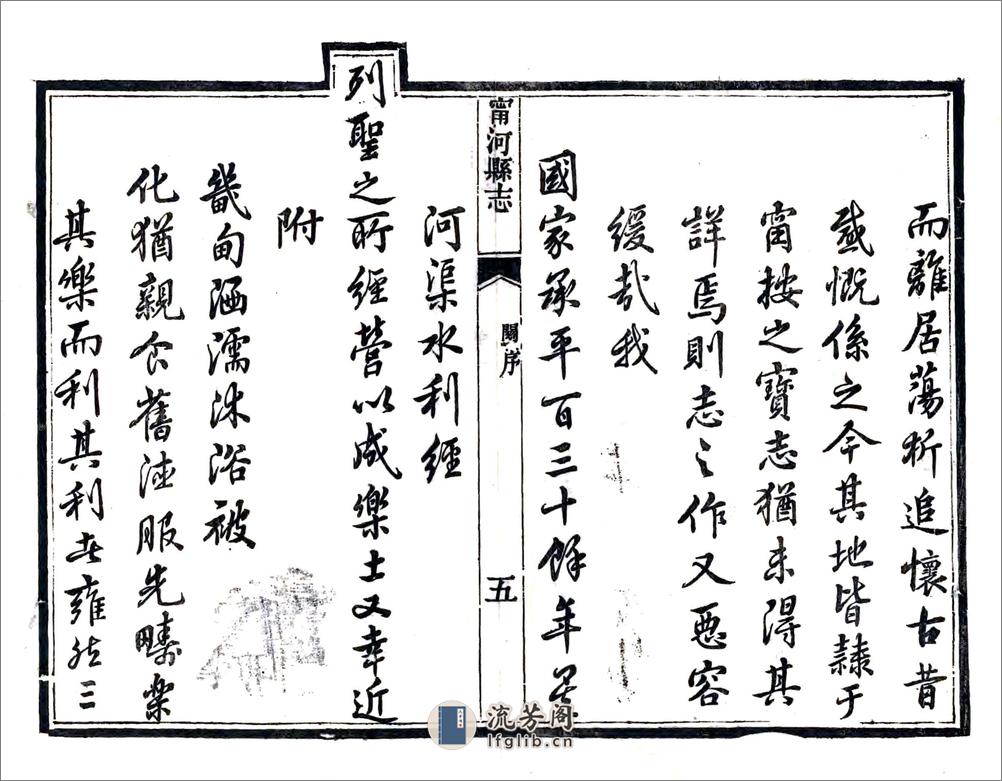 而離居蕩析追懷古昔
感慨係之今其地皆隸于
甯按之寶志猶未得其
詳焉則志之作又惡容
緩哉我
國家承平百三十餘年
甯河縣志
關序
五
河渠水利經
列聖之所經營以成樂土又幸近
附
畿甸洒濡沐浴被
化猶親食舊德服先疇樂
其樂而利其利者雍然三
流芳阁
lfglib.cn